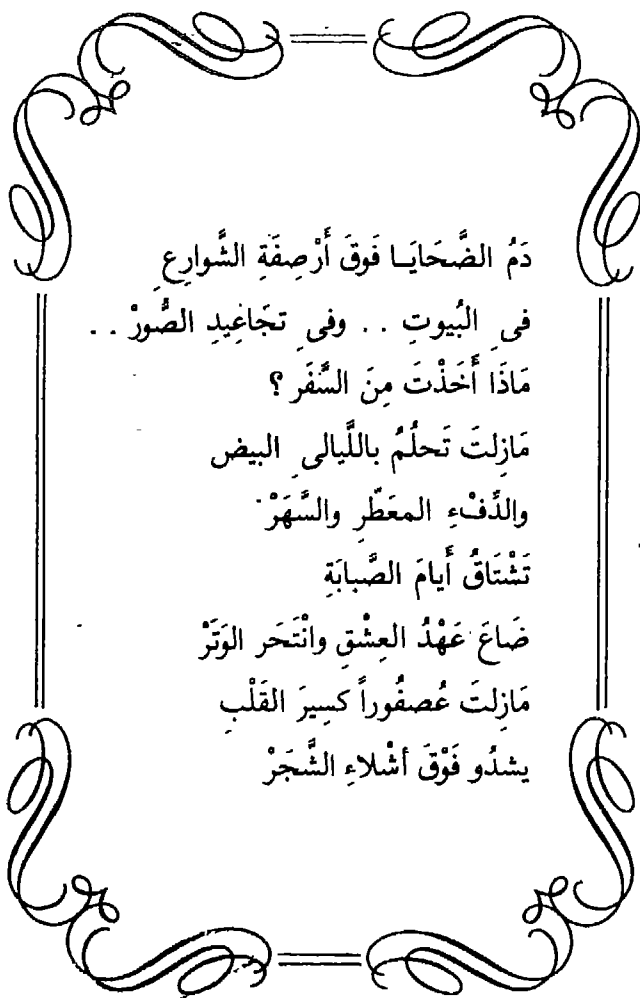 دَمُ الضَّحَايَا فَوقَ أَرْصِفَةِ الشَّوارِعِ
فى البُيوتِ .. وفى تجَاعِيدِ الصُّورْ ..
مَاذَا أَخَذْتَ مِنَ السَّفَرِ ؟
مَازِلتَ تَحلُمُ باللَّيالى البيض
والدِّفْءِ المعَطَّرِ والسَّهَرْ
تَشْتَاقُ أَيامَ الصَّبابَةِ
ضَاعَ عَهْدُ العِشْقِ وانْتَحَر الوَتَرْ
مَازِلتَ عُصفُوراً كسِيرَ القَلْبِ
يشدُو فَوْقَ أشْلاءِ الشَّجَرْ